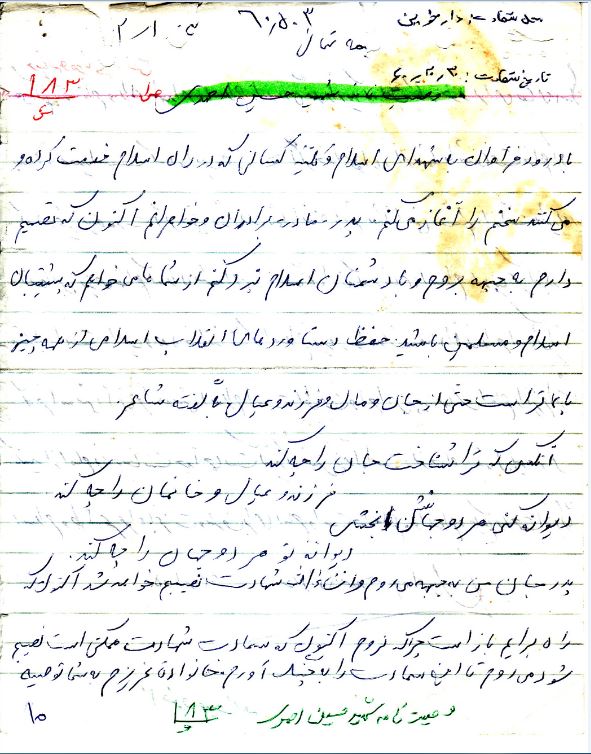 محل شهادت: دارخوین
۶۰،۵،۳
تاریخ شهادت: ۶۰،۳،۲۰
وصیت نامه شهید حسین احمدی
۱۸۳
با درود فراوان به شهدای اسلام و کلیه کسانی که در راه اسلام خدمت کرده و
می‌کنند سخنم را آغاز می‌کنم. پدر، مادر، برادران و خواهرانم اکنون که تصمیم
دارم به جبهه بروم و با دشمنان اسلام نبرد کنم از شماها می‌خواهم که پشتیبان
اسلام و مسلمین باشید. حفظ دستاوردهای انقلاب اسلامی از همه چیز
بالاتر است حتی از جان و مال و فرزند و عیال به گفته شاعر:
آنکس که ترا شناخت جان را چه کند
فرزند و عیال و خانمان را چه کند
دیوانه کنی هر دو جهانش بخشی
دیوانه تو هر دو جهان را چه کند.
پدر جان من به جبهه می‌روم و انشاءالله شهادت نصیبم خواهد شد اکنون که
راه برایم باز است چرا که نروم اکنون که سعادت شهادت ممکن است نصیبم
شود می‌روم تا این سعادت را به چنگ آورم. خانواده عزیزم به شما توصیه
وصیت نامه شهید حسین احمدی
۱۸۳
۱۵